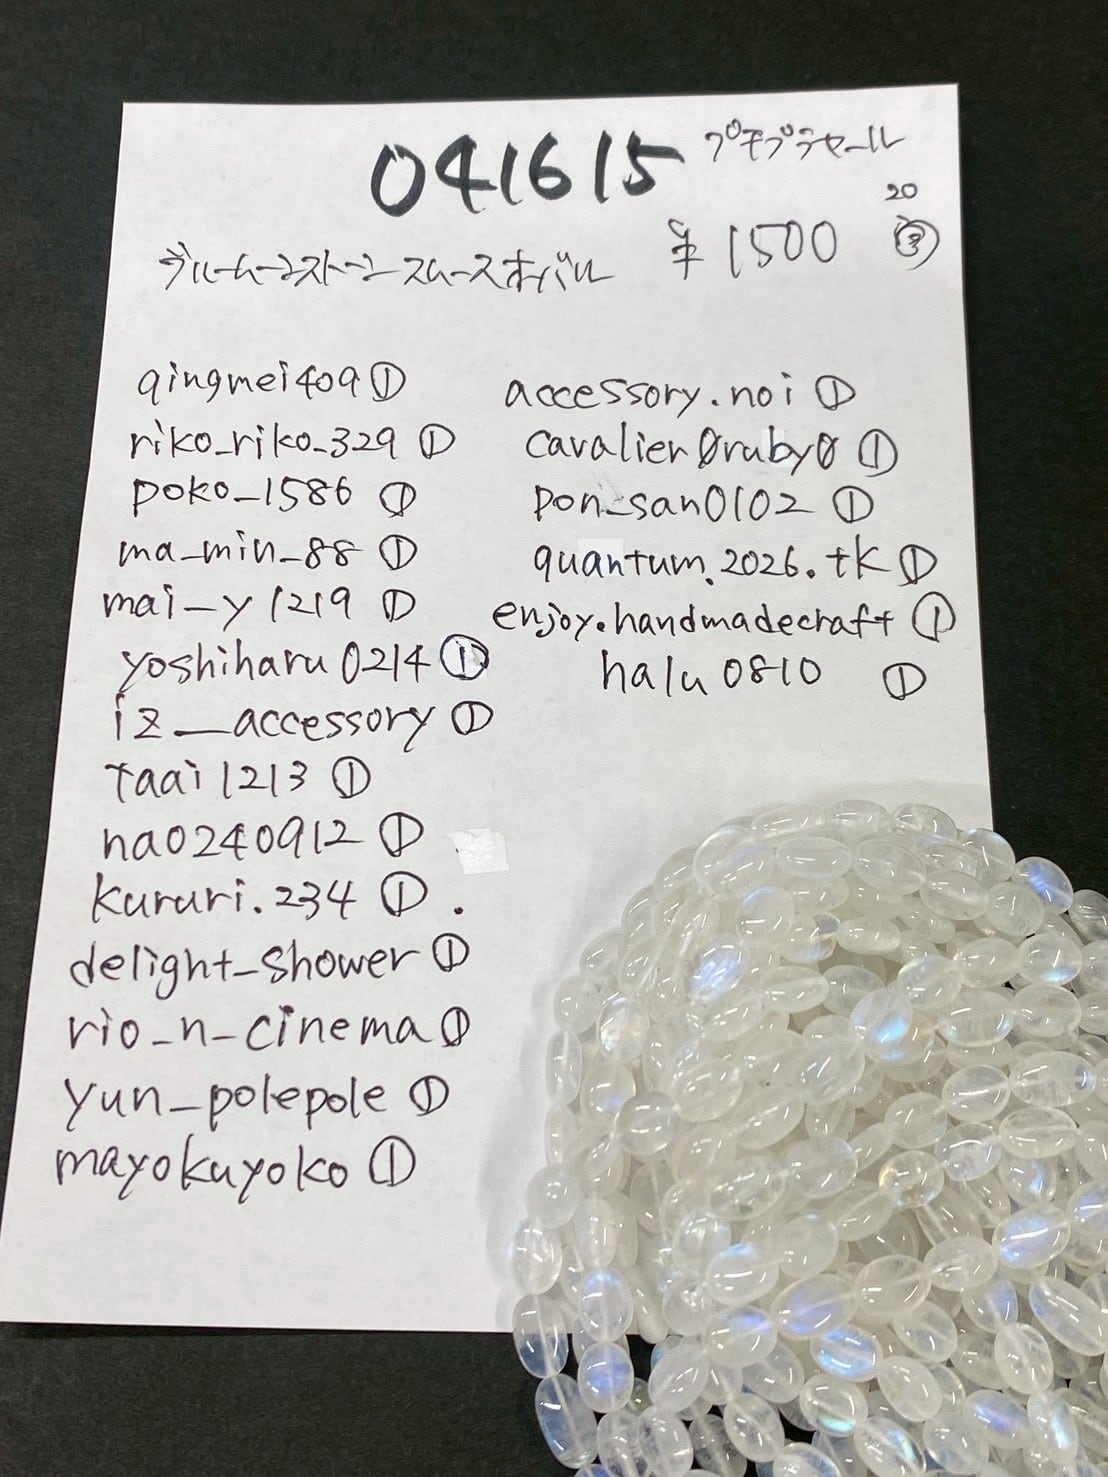 041615 プチプラセール
20
ブルームーンストーンスムースオーバル ¥1500
qingmei409①
riko_riko_329①
poko_1586①
ma_min_88①
mai_y1219①
yoshiharu0214①
iz__accessory①
taai1213①
na0240912①
kururi.234①.
delight_shower①
rio_n_cinema①
yun_polepole①
mayokuyoko①
accessory.noi①
cavalier0ruby0①
pon_san0102①
quantum.2026.tk①
enjoy.handmadecraft①
halu0810①